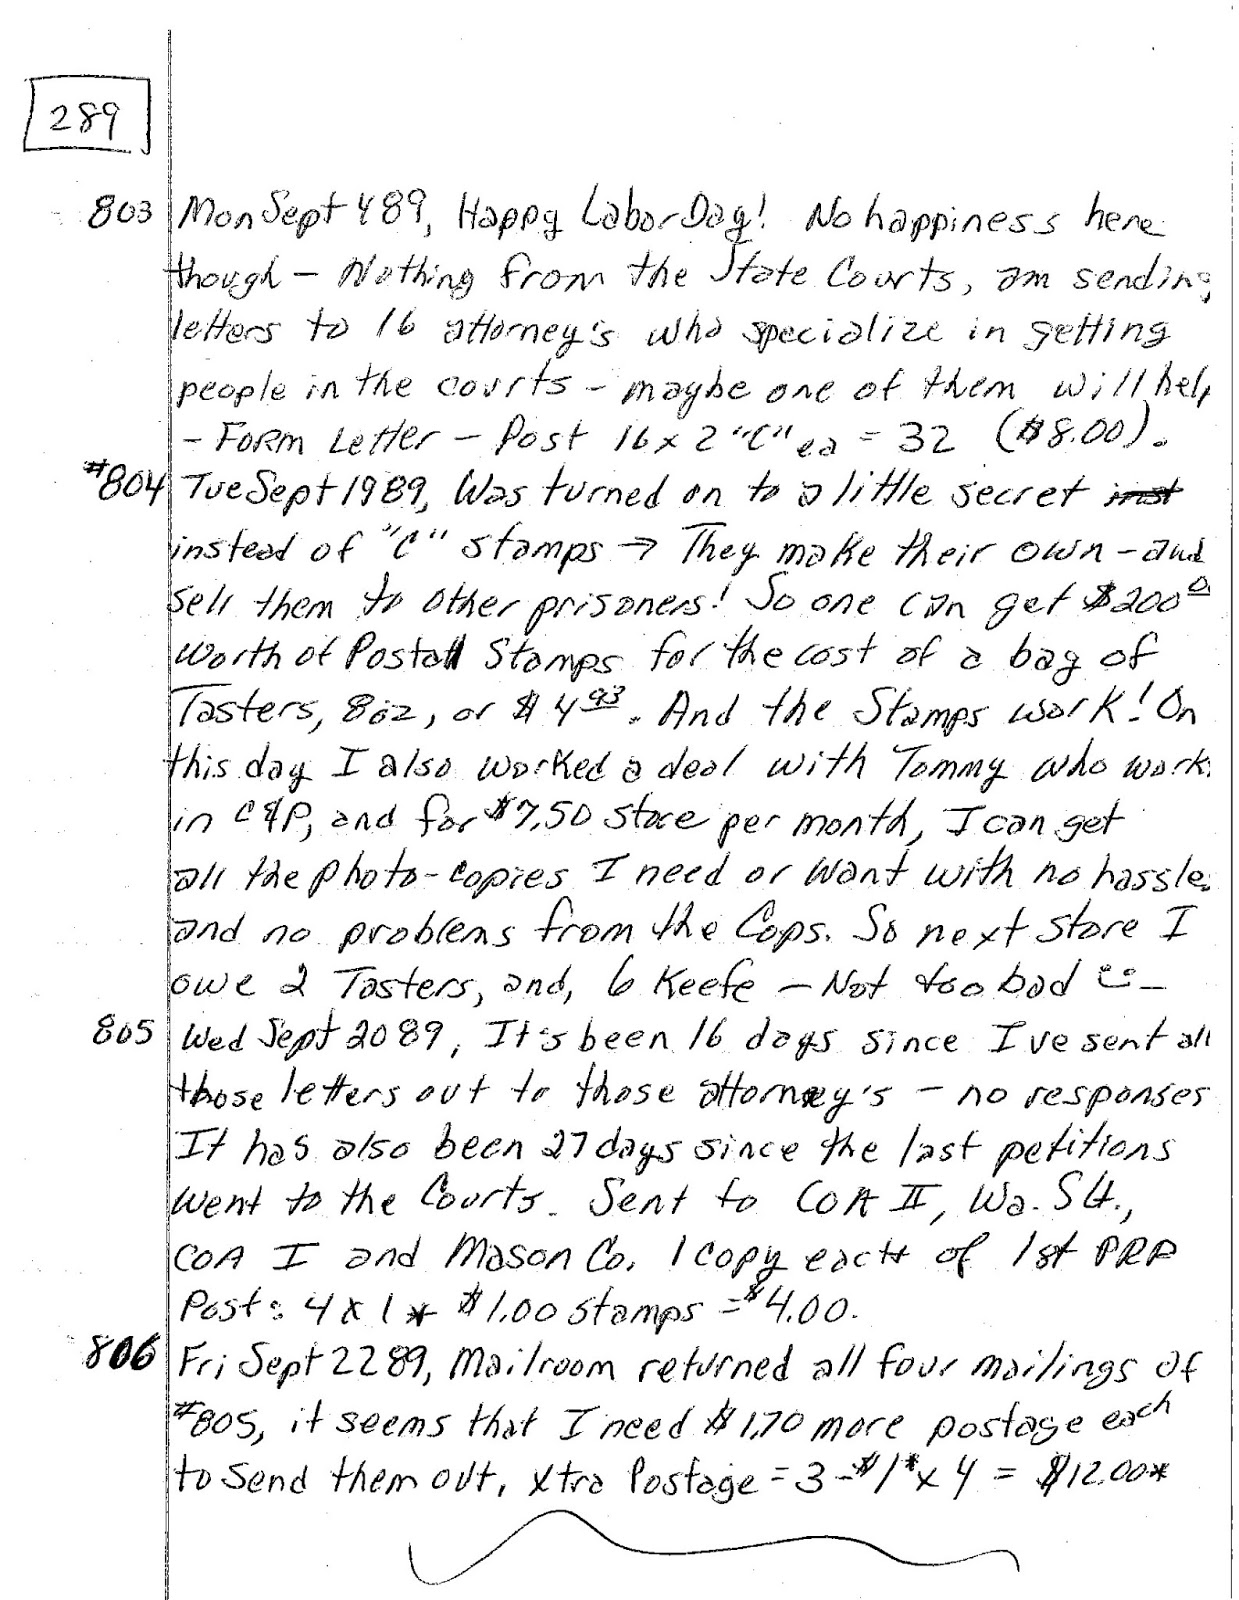 289
803 Mon Sept 4 89, Happy Labor Day! No happiness here
though - Nothing from the State Courts, am sending
letters to 16 attorney's who specialize in getting
people in the courts - maybe one of them will help
- Form Letter - Post 16 x 2 "C" ea = 32 ($8.00).
#804 Tue Sept 19 89, Was turned on to a little secret inst
instead of "C" stamps → They make their own - and
sell them to other prisoners! So one can get $200 00
worth of Postal Stamps for the cost of a bag of
Tasters, 8oz, or $4 93. And the Stamps work! On
this day I also worked a deal with Tommy who works
in C&P, and for $7.50 store per month, I can get
all the photo-copies I need or want with no hassle.
and no problems from the Cops. So next store I
owe 2 Tasters, and, 6 Keefe - Not too bad
805 Wed Sept 20 89, It's been 16 days since I've sent all
those letters out to those attorney's - no responses
It has also been 27 days since the last petitions
went to the Courts. Sent to COA II, Wa. S Ct.,
COA I and Mason Co. 1 copy each of 1st PRP
Post: 4 x 1 * $1.00 stamps = $4.00.
806 Fri Sept 22 89, Mailroom returned all four mailings of
#805, it seems that I need $1.70 more postage each
to send them out, xtra Postage = 3 - $1* x 4 = $12.00*